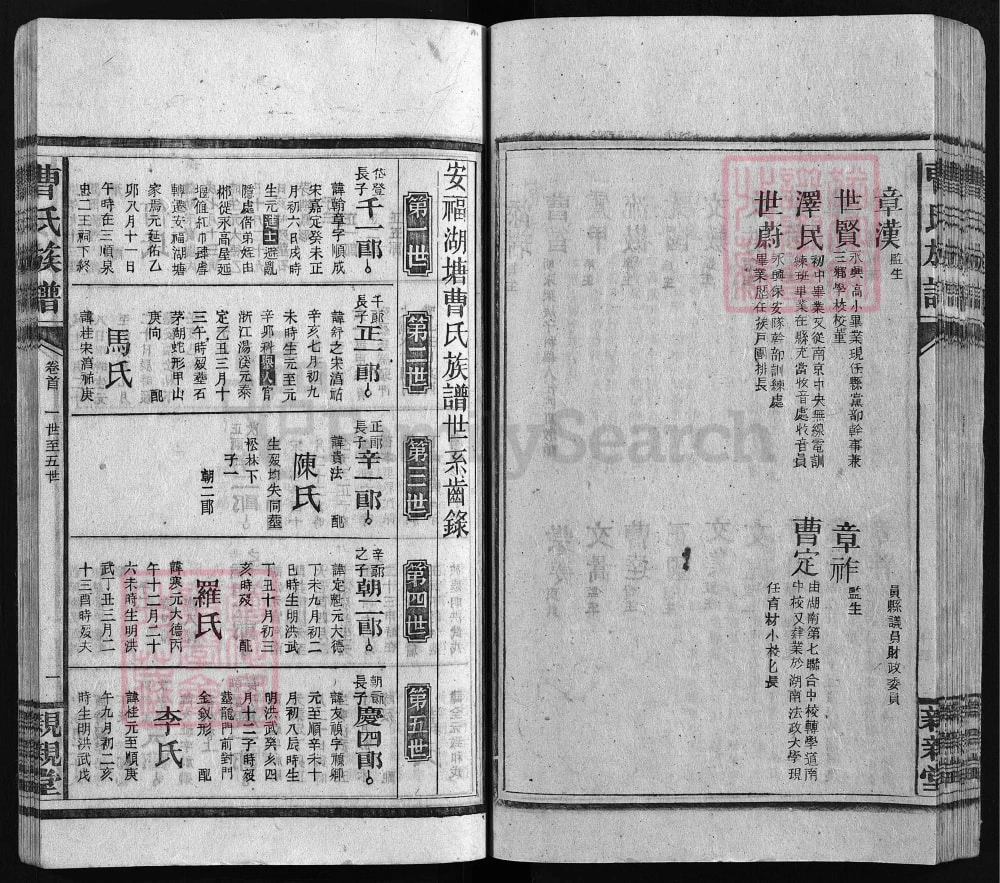 章漢
監生
世賢
永興高小畢業現任縣黨部幹事兼
三鄉學校校董
澤民
初中畢業又從南京中央無線電訓
練班畢業在縣充當收音處收音員
世蔚
永興保安隊幹部訓練處
畢業歷在挨戶團排長
員縣議員財政委員
章祚
監生
曹定
由湖南第七聯合中校轉學道南
中校又肄業於湖南法政大學現
任育材小校校長
親親堂
安福湖塘曹氏族譜世系齒錄
第一世
岱登
長子
千一郎
諱翰章字順成
宋嘉定癸未正
月初六日戌時
生元進士避亂
隱處偕弟姪由
郴從永高星延
堰值紅巾肆虐
轉遷安福湖塘
家焉元延佑乙
卯八月十一日
午時在三順泉
忠二王祠下終
第二世
千一郎
長子
正二郎
諱舒之宋淳祐
辛亥七月初九
未時生元至元
辛卯科舉人官
浙江湯溪元泰
定乙丑三月十
三午時歿塟石
茅湖蛇形甲山
庚向 配
馬氏
諱桂宋淳祐庚
第三世
正二郎
長子
辛一郎
諱貴法 配
陳氏
生歿均失同塟
松林下
子一
朝二郎
第四世
辛一郎
之子
朝二郎
諱定慰元大德
丁未九月初二
巳時生明洪武
丁丑十月初三
亥時歿 配
羅氏
諱寒元大德丙
午十二月二十
六未時生明洪
武丁丑三月二
十三酉時歿夫
第五世
朝二郎
長子
慶四郎
諱友頑字積卿
元至順辛未十
月初八辰時生
明洪武癸亥四
月十二子時歿
塟龍門前對門
金釵形 配
李氏
諱桂元至順庚
午九月初二亥
時生明洪武戊
曹氏族譜
卷首
一世至五世
一
親親堂
FamilySearch